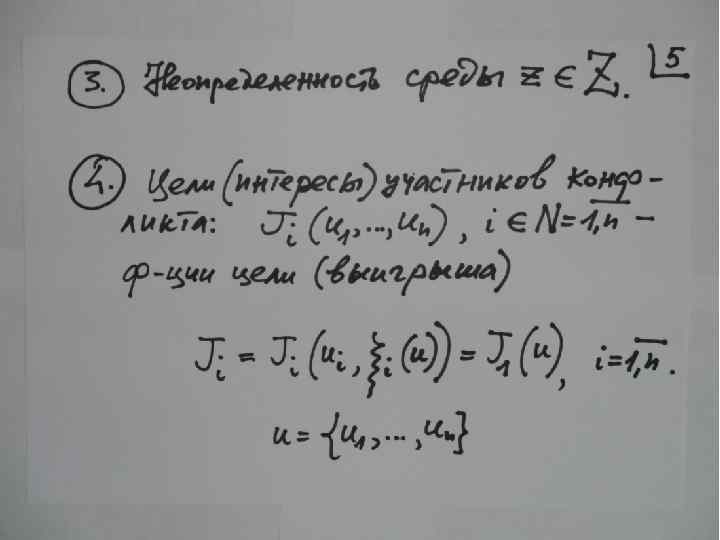 3. Неопределенность среды z ∈ Z. 5
4. Цели (интересы) участников конф-
ликта: J_i (u_1, ..., u_n), i ∈ N = \overline{1,n} -
ф-ции цели (выигрыша)
J_i = J_i (u_i, ξ_i (u)) = J_1 (u), i = \overline{1,n}.
u = {u_1, ..., u_n}